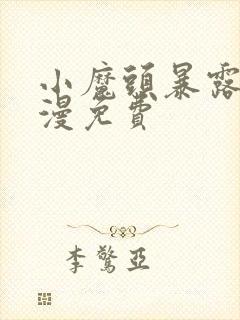 小魔頭暴露
漫免費
李驚亞